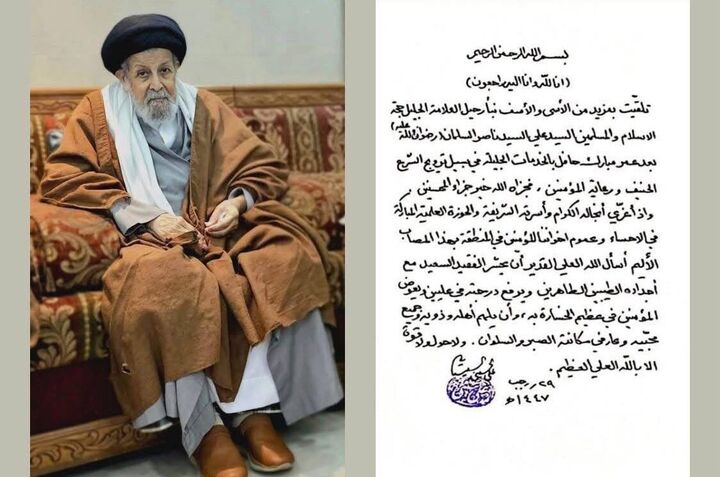 بسم الله الرحمن الرحيم
(انا لله وانا اليه راجعون)
تلقيت بمزيد من الأسى والأسف نبأ رحيل العلامة الجليل حجة
الاسلام والمسلمين السيد علي السيد ناصر السلمان (رضوان الله عليه)
بعد عمر مبارك حافل بالخدمات الجليلة في سبيل ترويج الشرع
الحنيف ورعاية المؤمنين ، فجزاه الله خير جزاء المحسنين .
واذ أعزّي أنجاله الكرام وأسرته الشريفة والحوزة العلمية المباركة
في الاحساء وعموم اخواننا المؤمنين في المنطقة بهذا المصاب
الأليم أسأل الله العلي القدير أن يحشر الفقيد السعيد مع
أجداده الطيبين الطاهرين ويرفع درجته في عليين ويعوّض
المؤمنين في عظيم الخسارة به ، وأن يلهم أهله وذويه وجميع
محبّيه وعارفي مكانته الصبر والسلوان . ولا حول ولا قوة
الا بالله العلي العظيم .
٢٩ رجب
١٤٤٧ هـ